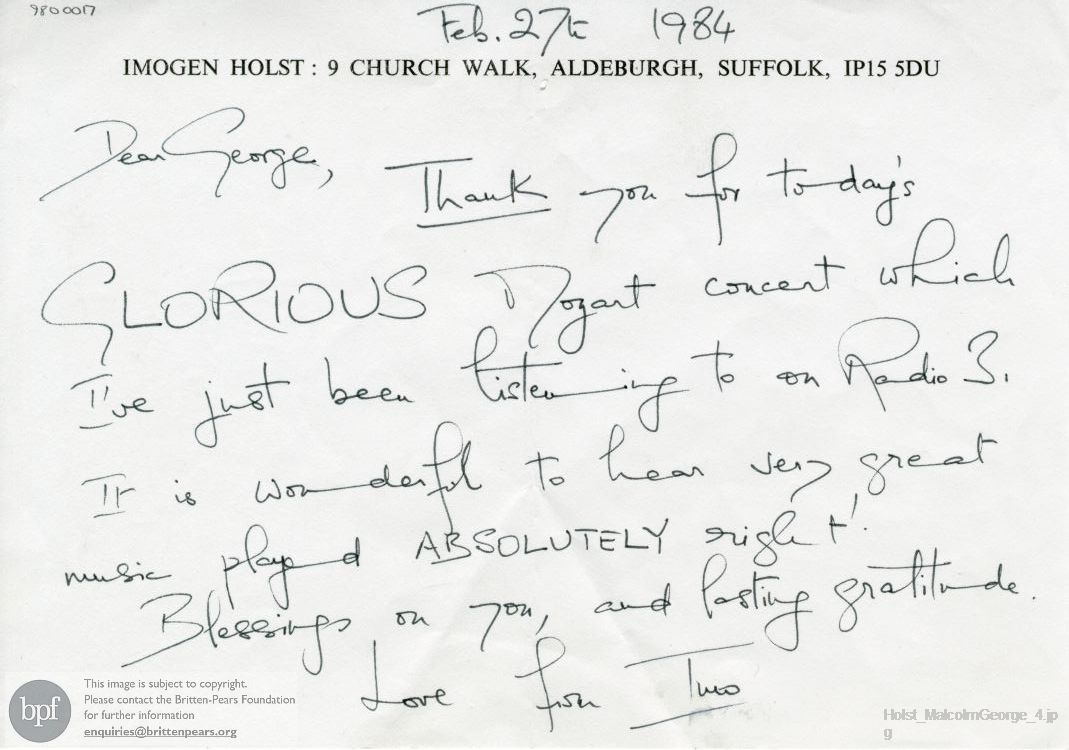 9800017
Feb. 27th 1984
IMOGEN HOLST : 9 CHURCH WALK, ALDEBURGH, SUFFOLK, IP15 5DU
Dear George,
Thank you for to-day's
GLORIOUS Mozart concert which
I've just been listening to on Radio 3.
It is wonderful to hear very great
music played ABSOLUTELY right!
Blessings on you, and lasting gratitude.
Love from Imo
bpf
This image is subject to copyright.
Please contact the Britten-Pears Foundation
for further information
enquiries@brittenpears.org
Holst_MalcolmGeorge_4.jp
g